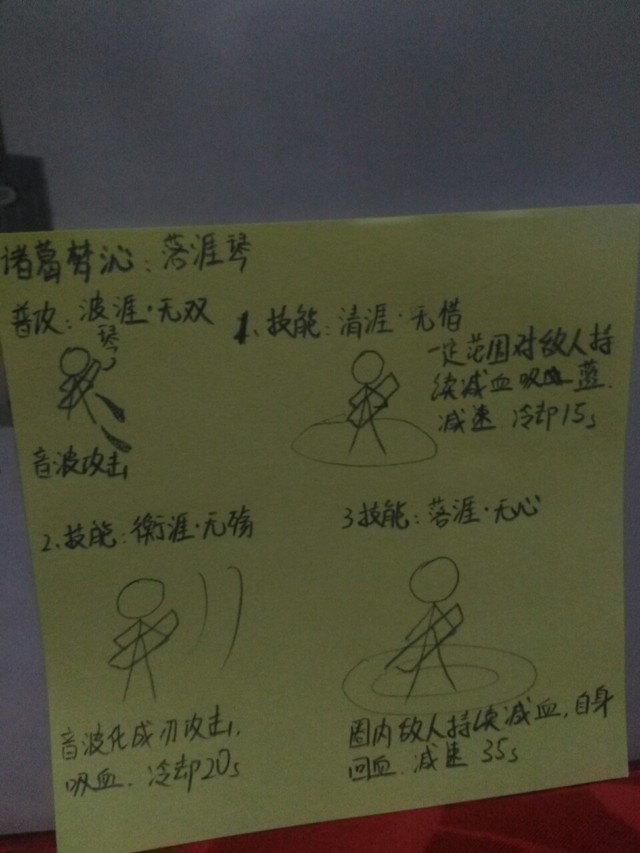 诸葛梦沁：落涯琴
普攻：波涯·无双
琴
音波攻击
1、技能：清涯·无惜
一定范围对敌人持
续减血吸蓝
减速 冷却15s
2、技能：衡涯·无殇
音波化成刃攻击，
吸血. 冷却20s
3技能：落涯·无心
圈内敌人持续减血，自身
回血. 减速 35s